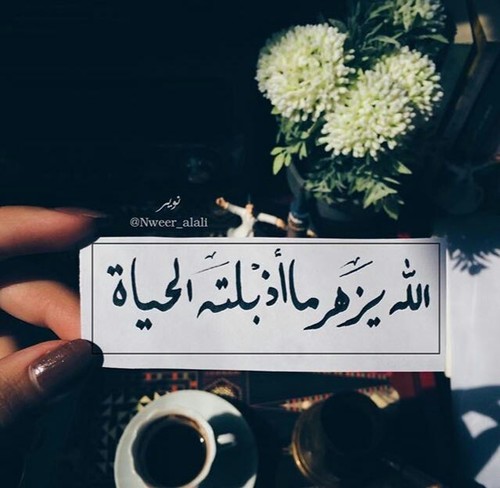 نوير
@Nweer_alali
الله يزهر ما أذبلته الحياة